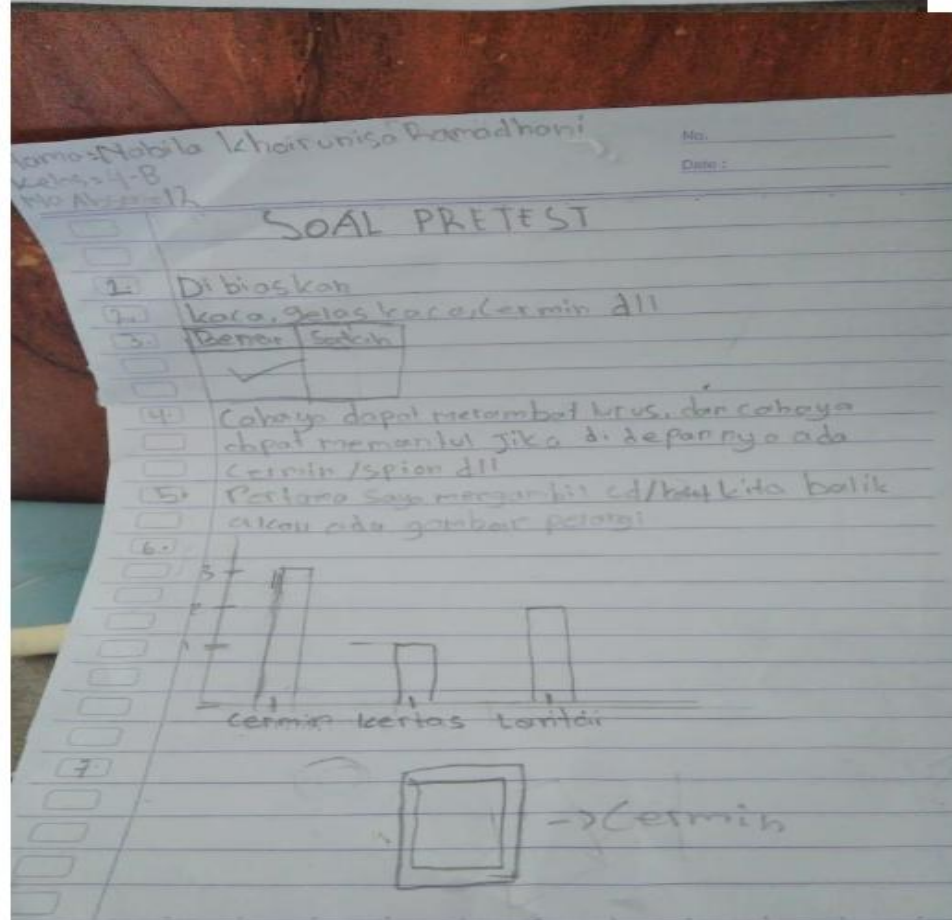 Nama=Nabila Khairunisa Ramadhani
No.
Kelas=4-B
Date :
No Absen=12
SOAL PRETEST
1. Dibiaskan
2. kaca, gelas kaca, Cermin dll
3. Benar
4. Cahaya dapat merambat lurus, dan cahaya
dapat memantul jika di depannya ada
Cermin /spion dll
5. Pertama saya mengambil cd/ kita balik
akan ada gambar pelangi
6.
3
2
1
cermin kertas
7.
->Cermin